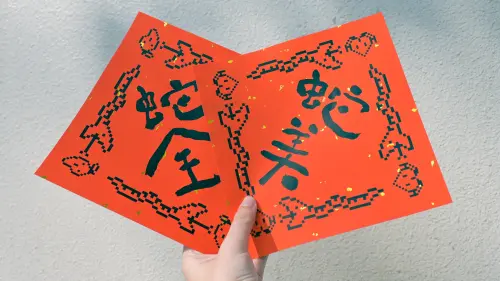 蛇全
蛇美